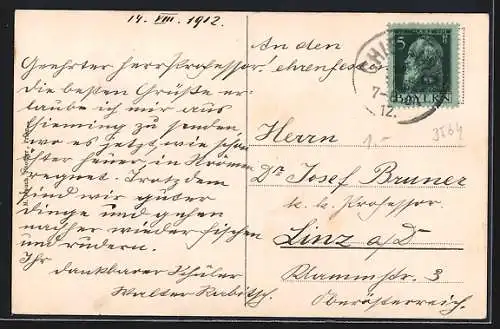 14. VIII. 1912.
Geehrter Herr Professor!
die besten Grüße er-
laube ich mir aus
Chieming zu senden,
wo es jetzt, wie schon
heuer, in
regnet. Trotzdem
sind wir guter
dinge und gehen
nachher wieder fischen
und rudern.
Ihr
dankbarer Schüler
Walter Rabitsch.
An den
ehrenfesten
Herrn
Dr Josef Bruner
k. k. Professor
Linz a/D
Klammstr. 3
Oberösterreich.
5
BAYERN
CHI
7-8
12.
1.-
3564